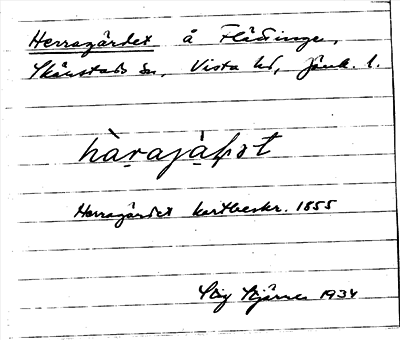 Herragärdet å Flättinge,
Skärstads sn, Vista hd, Jönk. l.
hàrajàḥɔt
Herragärdet kartbeskr. 1855
Stig Bjärre 1934